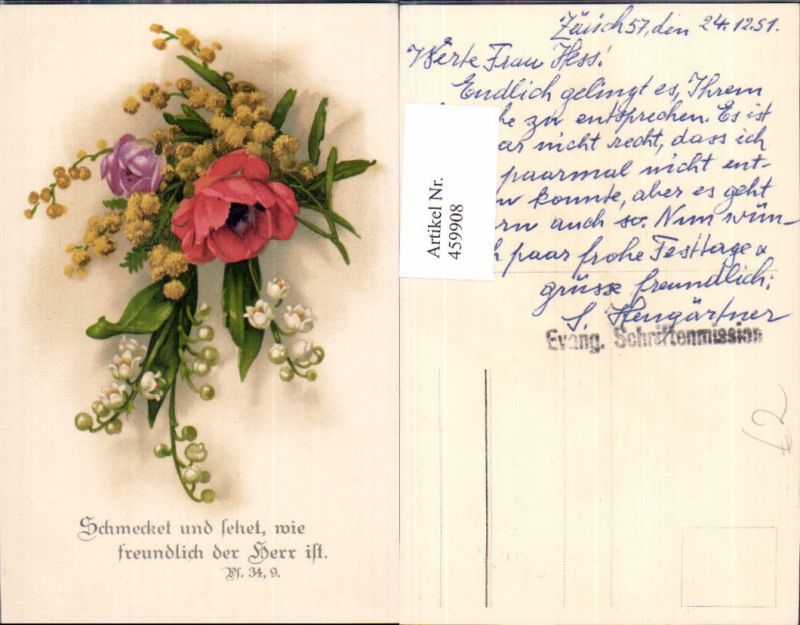 Schmecket und sehet, wie
freundlich der Herr ist.
Ps. 34, 9.
Zürich 57, den 24.12.51.
Werte Frau Hess!
Endlich gelingt es, Ihrem
he zu entsprechen. Es ist
ar nicht recht, dass ich
paarmal nicht ent-
konnte, aber es geht
rn auch so. Nun wün-
h paar frohe Festtage &
grüsse freundlich:
S. Hengärtner
Evang. Schriftenmission
Artikel Nr.
459908
62